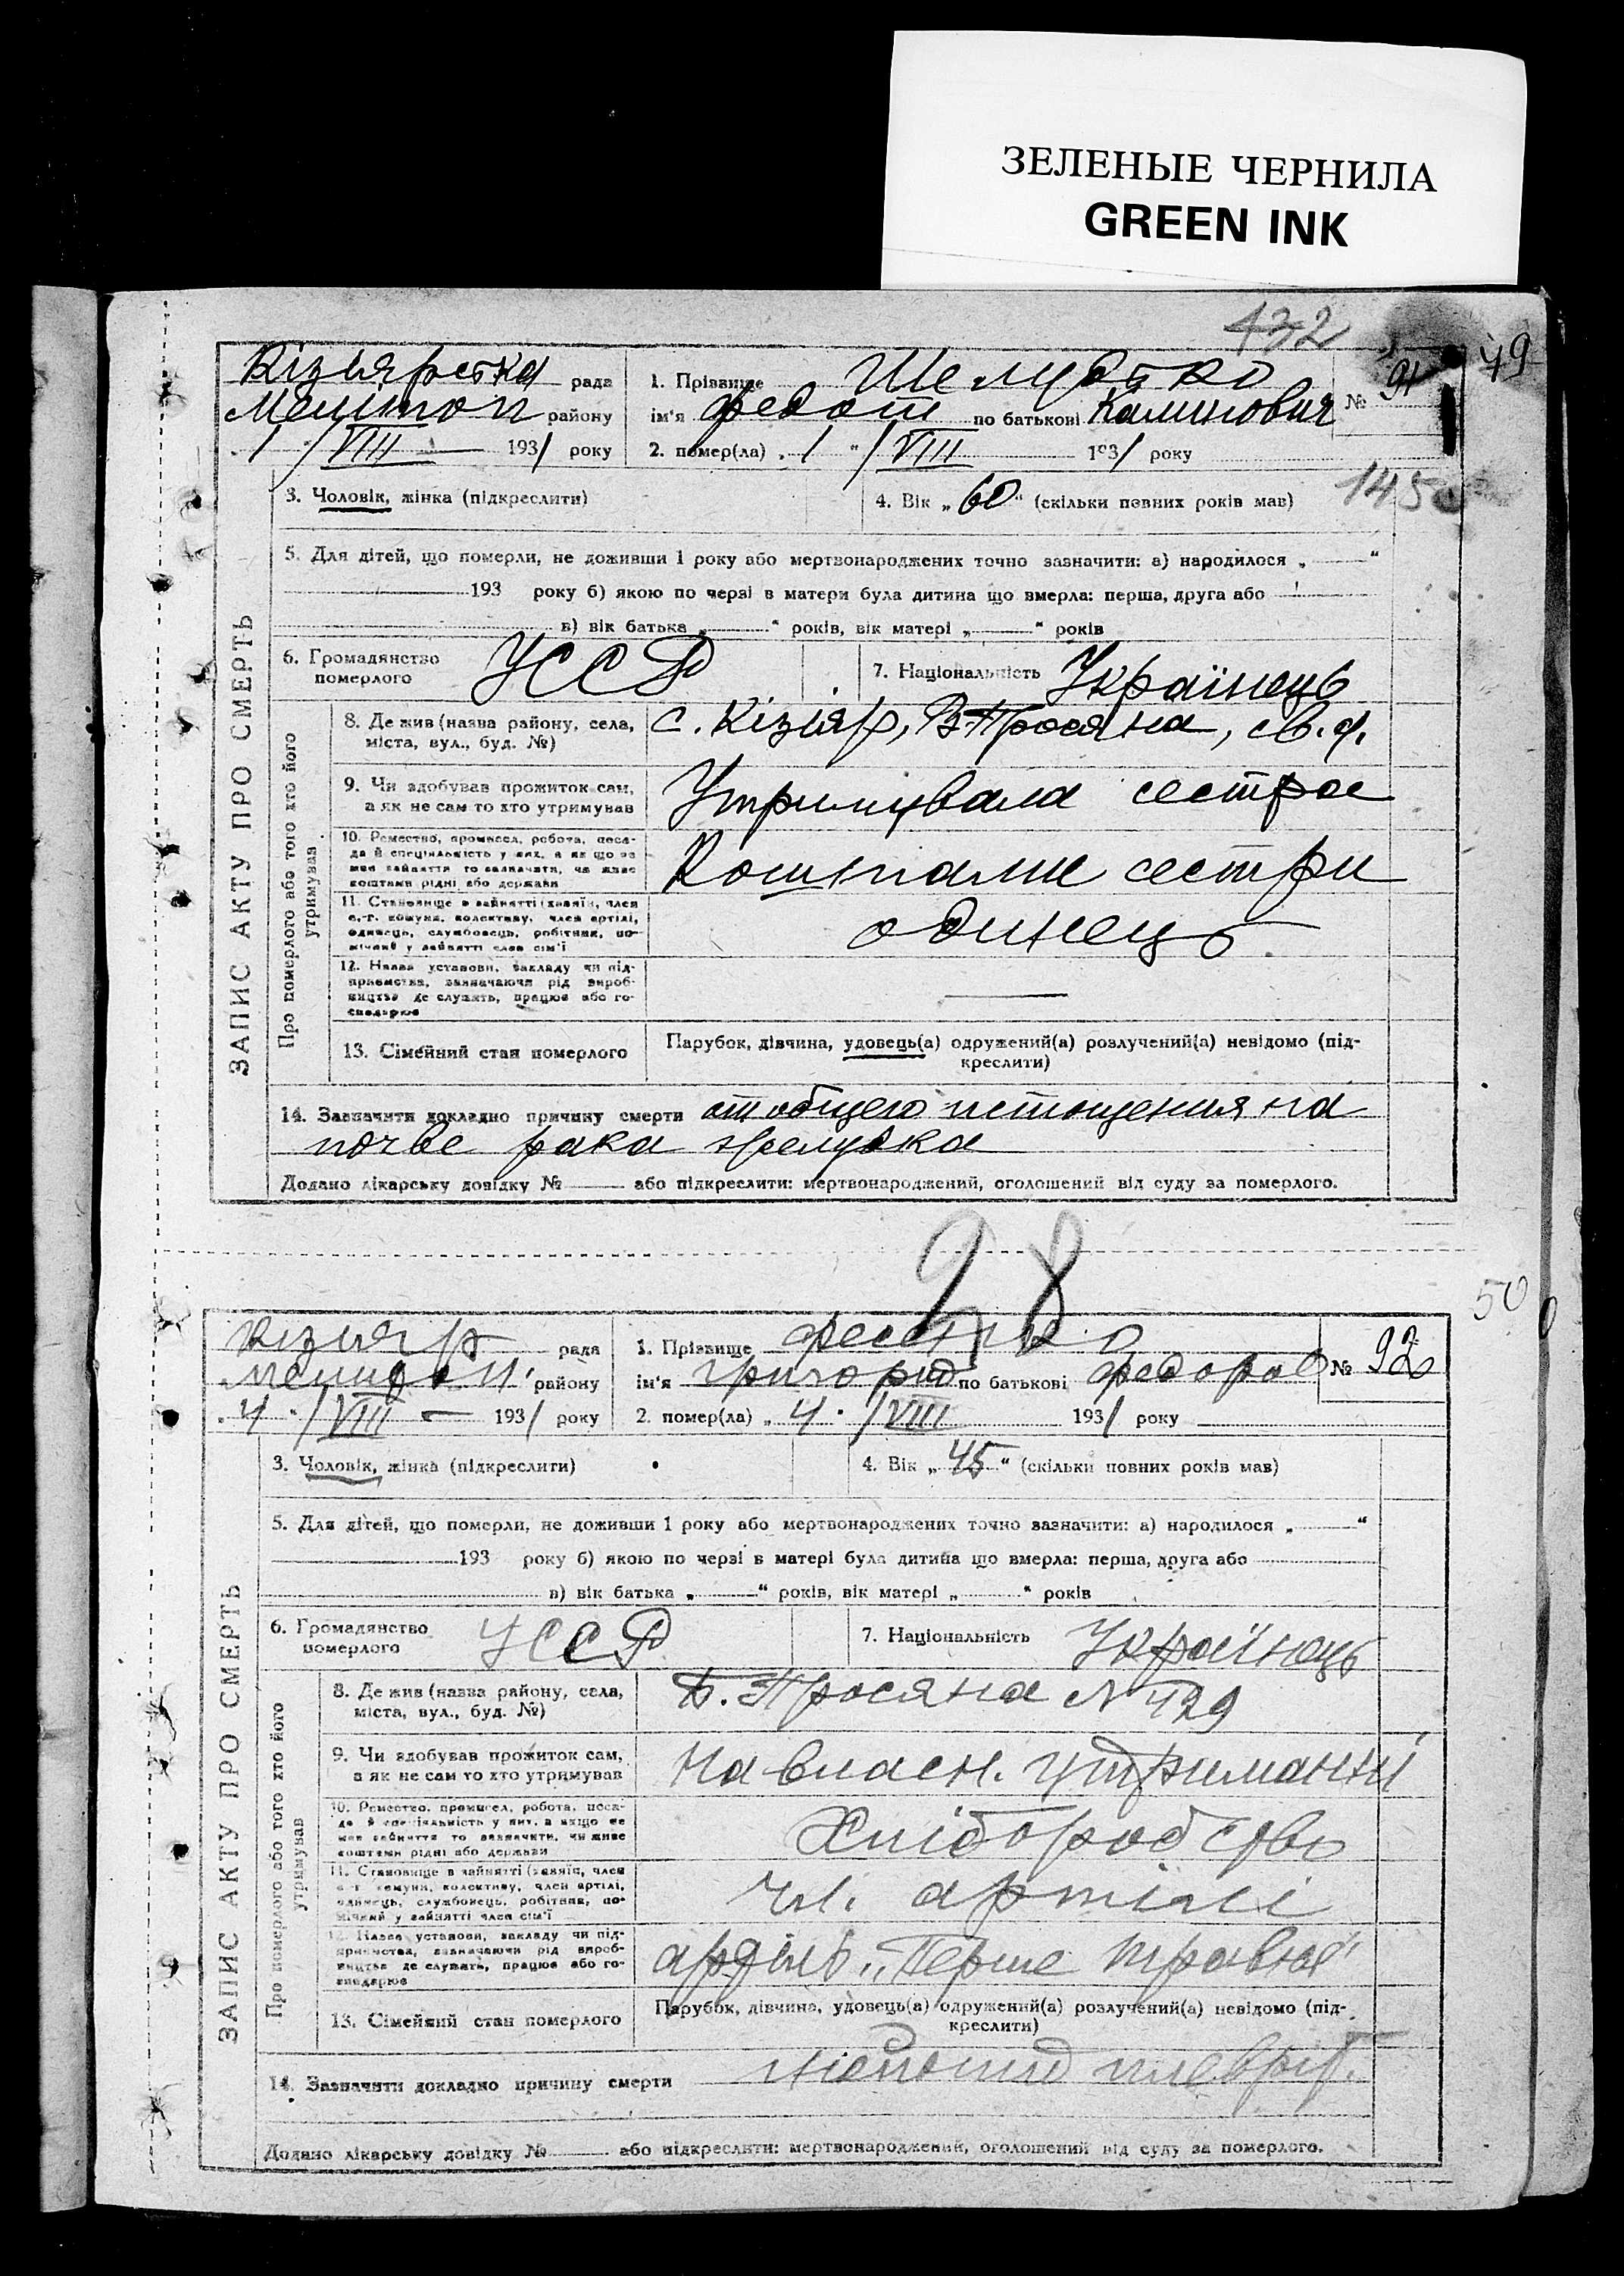 ЗЕЛЕНЫЕ ЧЕРНИЛА
GREEN INK
432
Кізіярська рада
Мелитоп району
1 / VIII 1931 року
1. Прізвище Шелудько
ім'я Федот по батькові Калинович
№ 91
49
2. помер(ла) „1" / VIII 1931 року
3. Чоловік, жінка (підкреслити)
4. Вік „60" (скільки повних років мав)
145
5. Для дітей, що померли, не доживши 1 року або мертвонароджених точно зазначити: а) народилося „ "
193 року б) якою по черзі в матери була дитина що вмерла: перша, друга або
в) вік батька „ " років, вік матері „ " років
ЗАПИС АКТУ ПРО СМЕРТЬ
6. Громадянство померлого УССР
7. Національність Українець
Про померлого або того хто його утримував
8. Де жив (назва району, села, міста, вул., буд. №) с. Кізіяр, В-Просяна, св. ф.
9. Чи здобував прожиток сам, а як не сам то хто утримував Утримувала сестра
10. Ремество, промисел, робота, поса-
да й спеціяльність у них, а якщо не
мав зайняття то зазначити, чи живе
коштами рідні або держави Коштами сестри
11. Становище в зайнятті (хазяїн, член
с.-г. комуни, колективу, член артілі,
одинець, службовець, робітник, по-
мічний у зайнятті член сім'ї одинець
12. Назва установи, закладу чи під-
приємства, зазначаючи рід вироб-
ництва де служить, працює або го-
сподарює
13. Сімейний стан померлого Парубок, дівчина, удовець(а) одружений(а) розлучений(а) невідомо (під-
креслити)
14. Зазначити докладно причину смерти от общего истощения на
почве рака желудка
Додано лікарську довідку № або підкреслити: мертвонароджений, оголошений від суду за померлого.
28
50
Кізіяр рада
Мелитоп району
„4" / VIII 1931 року
1. Прізвище Фесенко
ім'я Григорій по батькові Федоров
№ 92
2. помер(ла) „4" / VIII 1931 року
3. Чоловік, жінка (підкреслити)
4. Вік „45" (скільки повних років мав)
5. Для дітей, що померли, не доживши 1 року або мертвонароджених точно зазначити: а) народилося „ "
193 року б) якою по черзі в матері була дитина що вмерла: перша, друга або
в) вік батька „ " років, вік матері „ " років
ЗАПИС АКТУ ПРО СМЕРТЬ
6. Громадянство померлого УССР
7. Національність Українець
Про померлого або того хто його утримував
8. Де жив (назва району, села, міста, вул., буд. №) В.-Просяна № 429
9. Чи здобував прожиток сам, а як не сам то хто утримував На власн. утриманні
10. Ремество, промисел, робота, поса-
да й спеціяльність у них, а якщо не
мав зайняття то зазначити, чи живе
коштами рідні або держави Хліборобство
11. Становище в зайнятті (хазяїн, член
с.-г. комуни, колективу, член артілі,
одинець, службовець, робітник, по-
мічний у зайнятті член сім'ї чл. артілі
12. Назва установи, закладу чи під-
приємства, зазначаючи рід вироб-
ництва де служить, працює або го-
сподарює артіль „Перше травня"
13. Сімейний стан померлого Парубок, дівчина, удовець(а) одружений(а) розлучений(а) невідомо (під-
креслити)
14. Зазначити докладно причину смерти плеврит.
Додано лікарську довідку № або підкреслити: мертвонароджений, оголошений від суду за померлого.